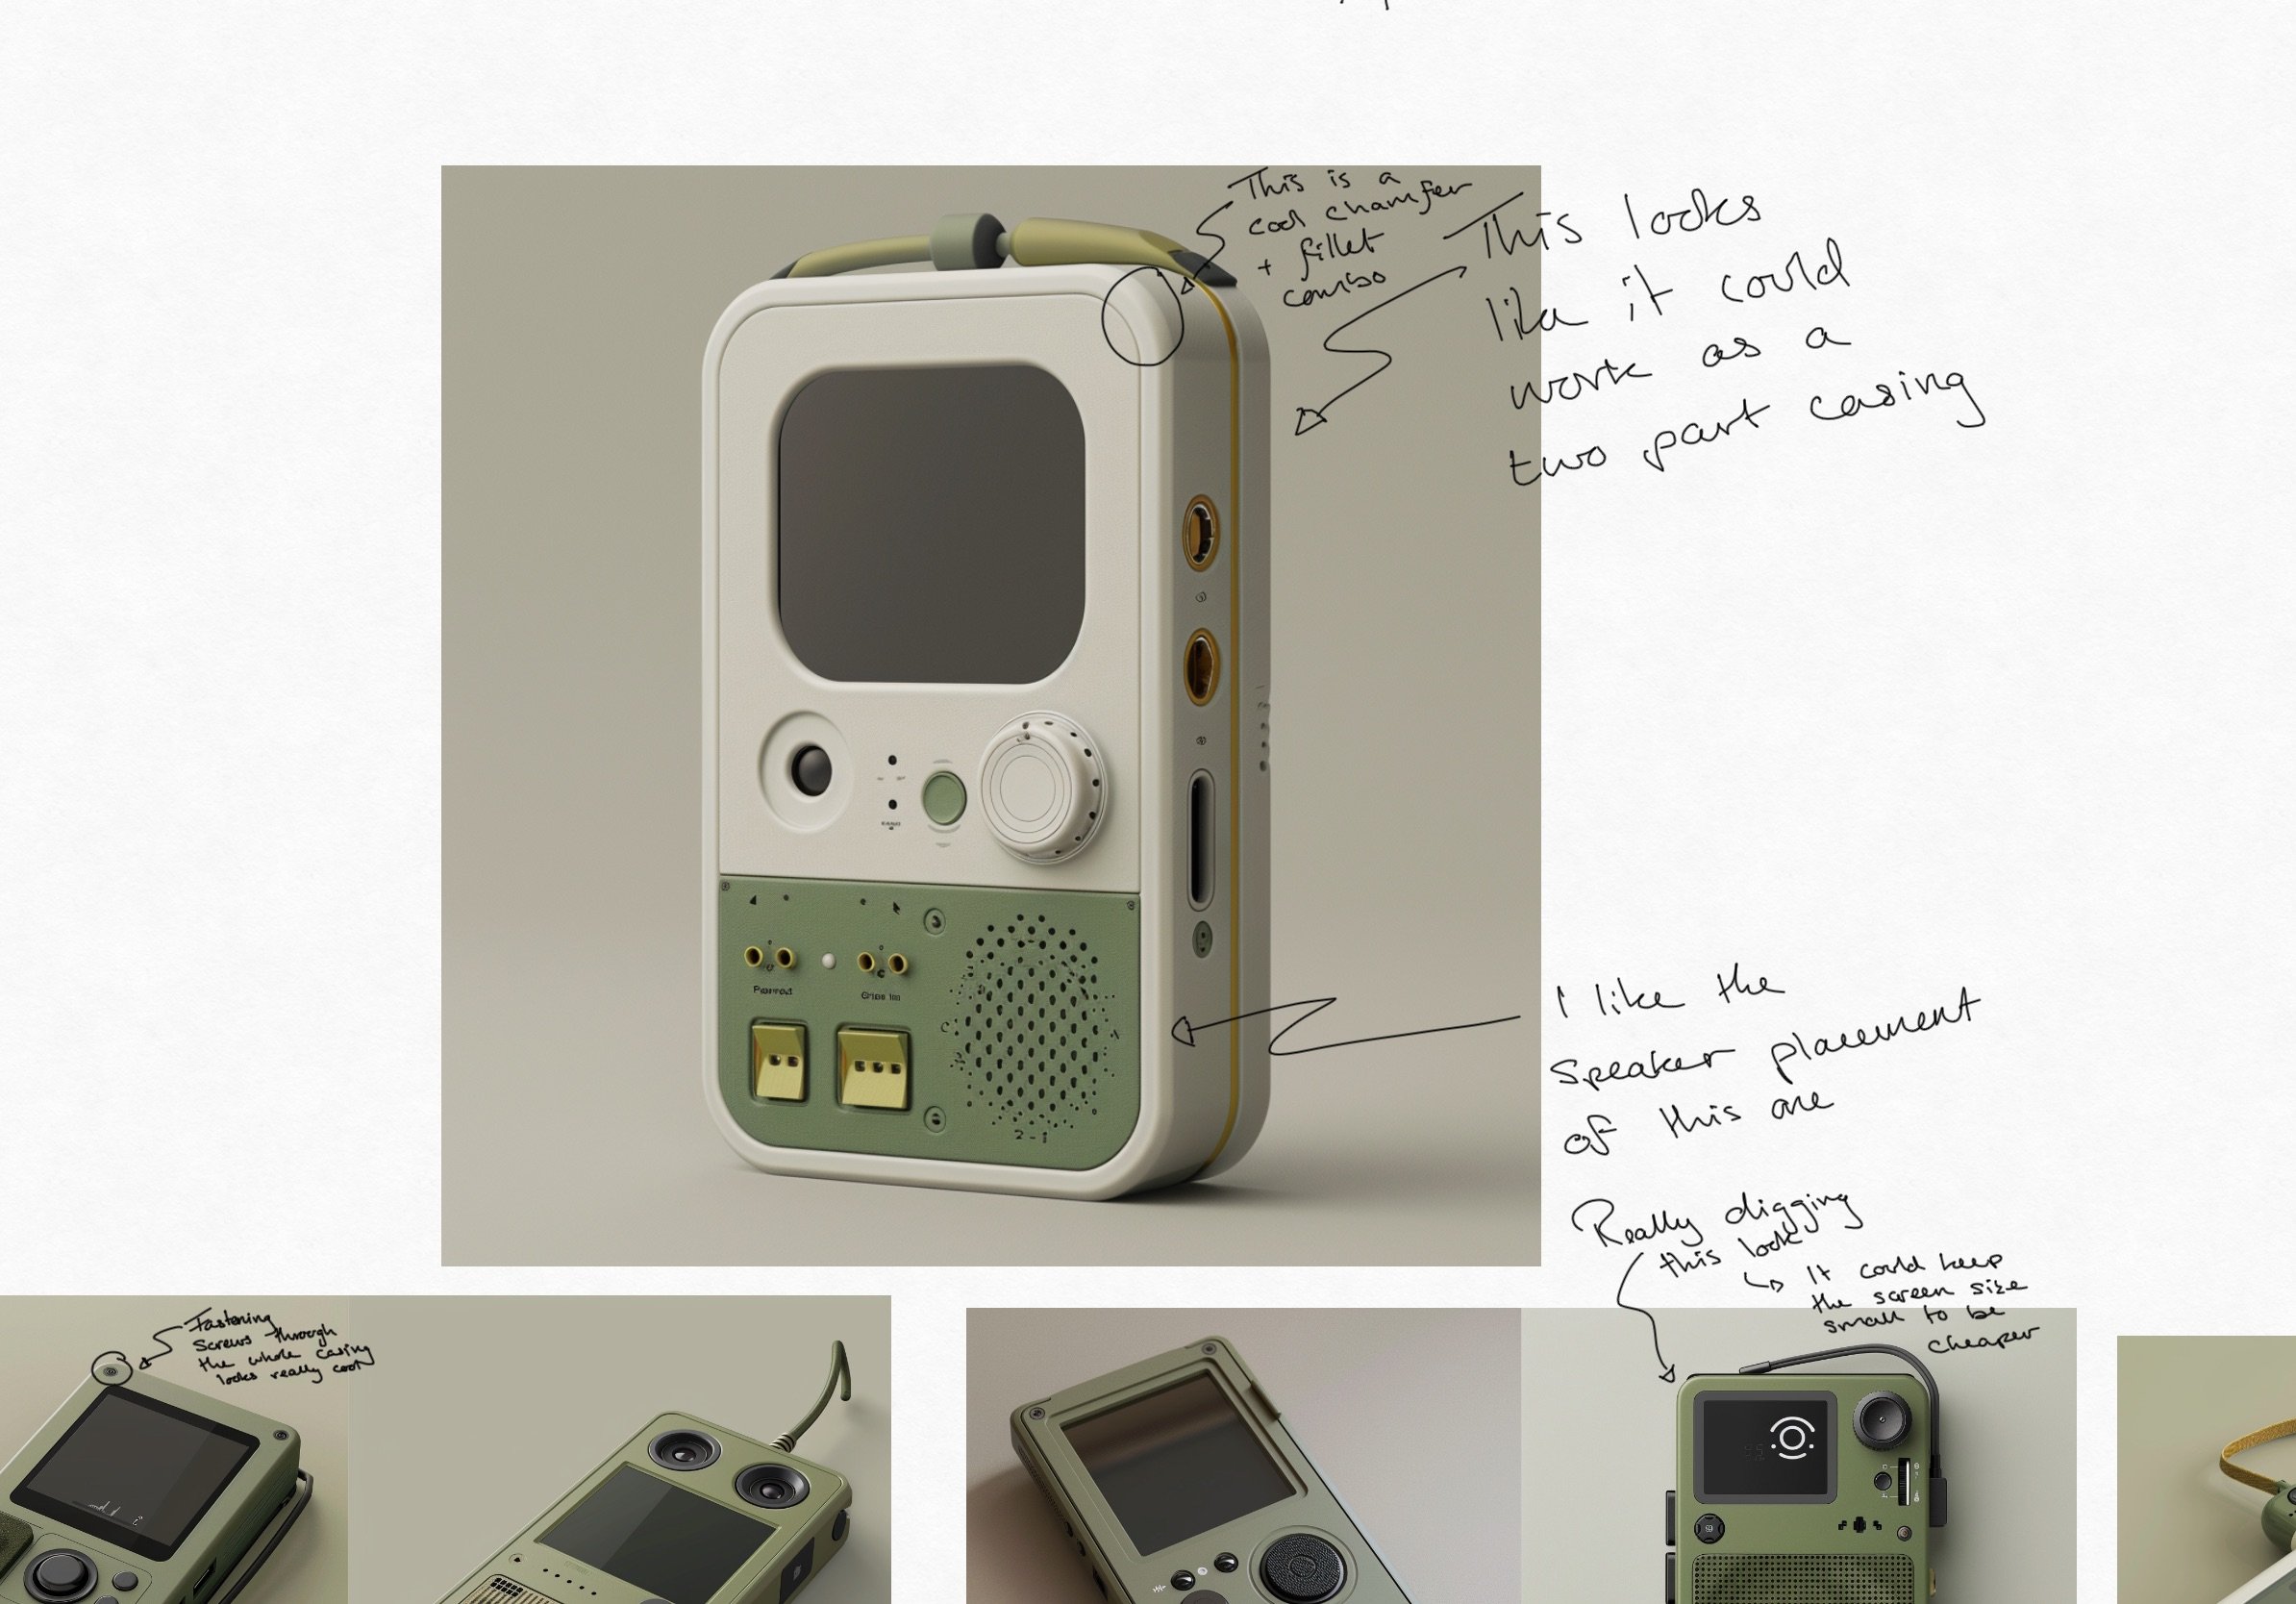 This is a
cool chamfer
+ fillet
combo
This looks
like it could
work as a
two part casing
I like the
speaker placement
of this one
Really digging
this look
↳ It could keep
the screen size
small to be
cheaper
Fastening
screws through
the whole casing
looks really cool
2-1